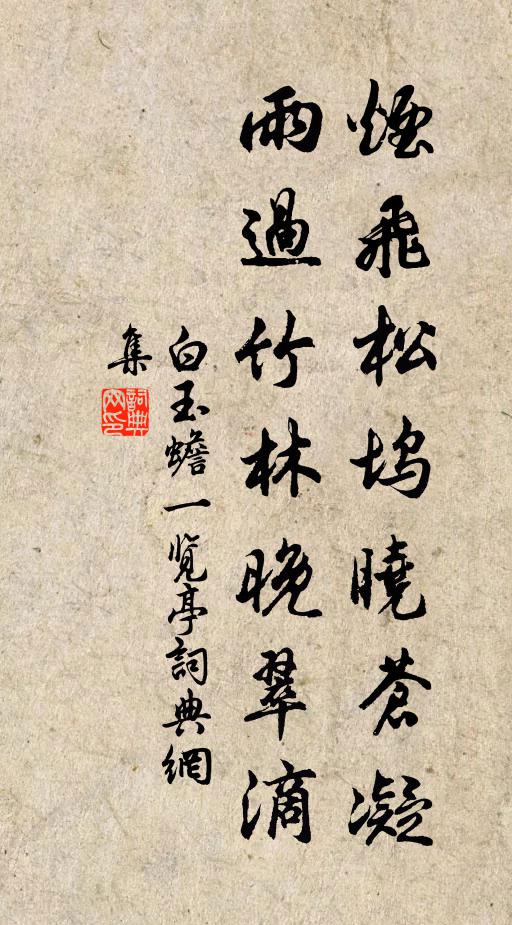 煙飛松塢曉蒼凝
雨過竹林晚翠滴
白玉蟾一覽亭詞典網
集
詞典
网印